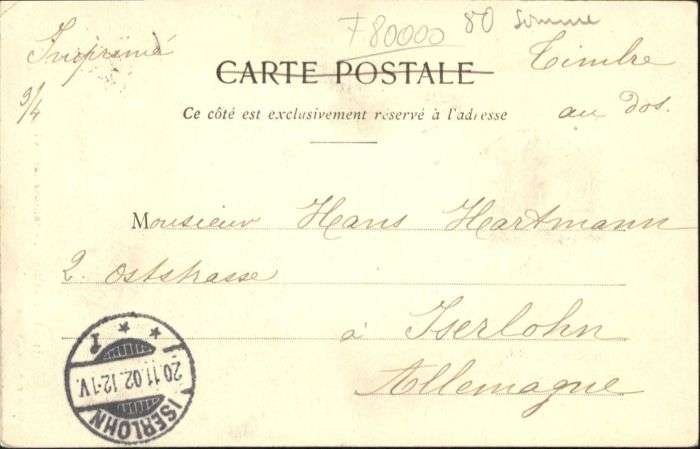 F80000 80 Somme
Imprimé
3/4
CARTE POSTALE
Timbre
au dos.
Ce côté est exclusivement réservé à l'adresse
Monsieur Hans Hartmann
2. Oststrasse
à Iserlohn
Allemagne
20.11.02.12-1V.
ISERLOHN
* *
1